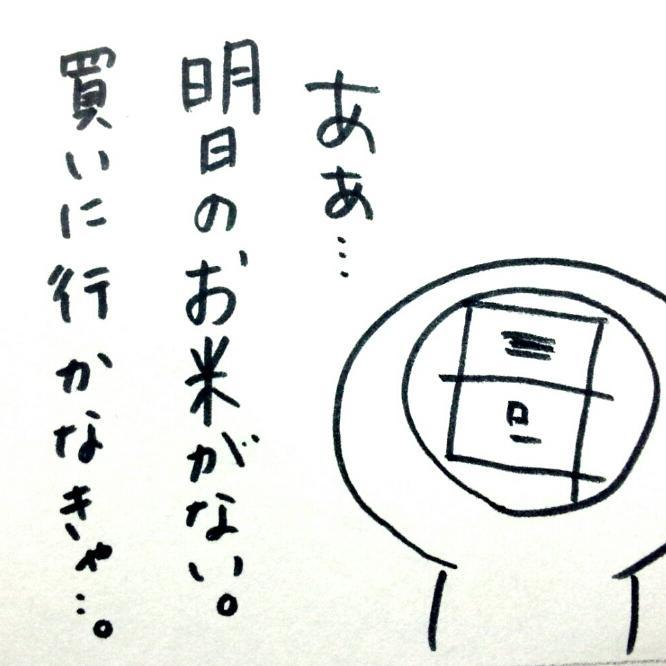 あぁ…
明日のお米がない。
買いに行かなきゃ…。